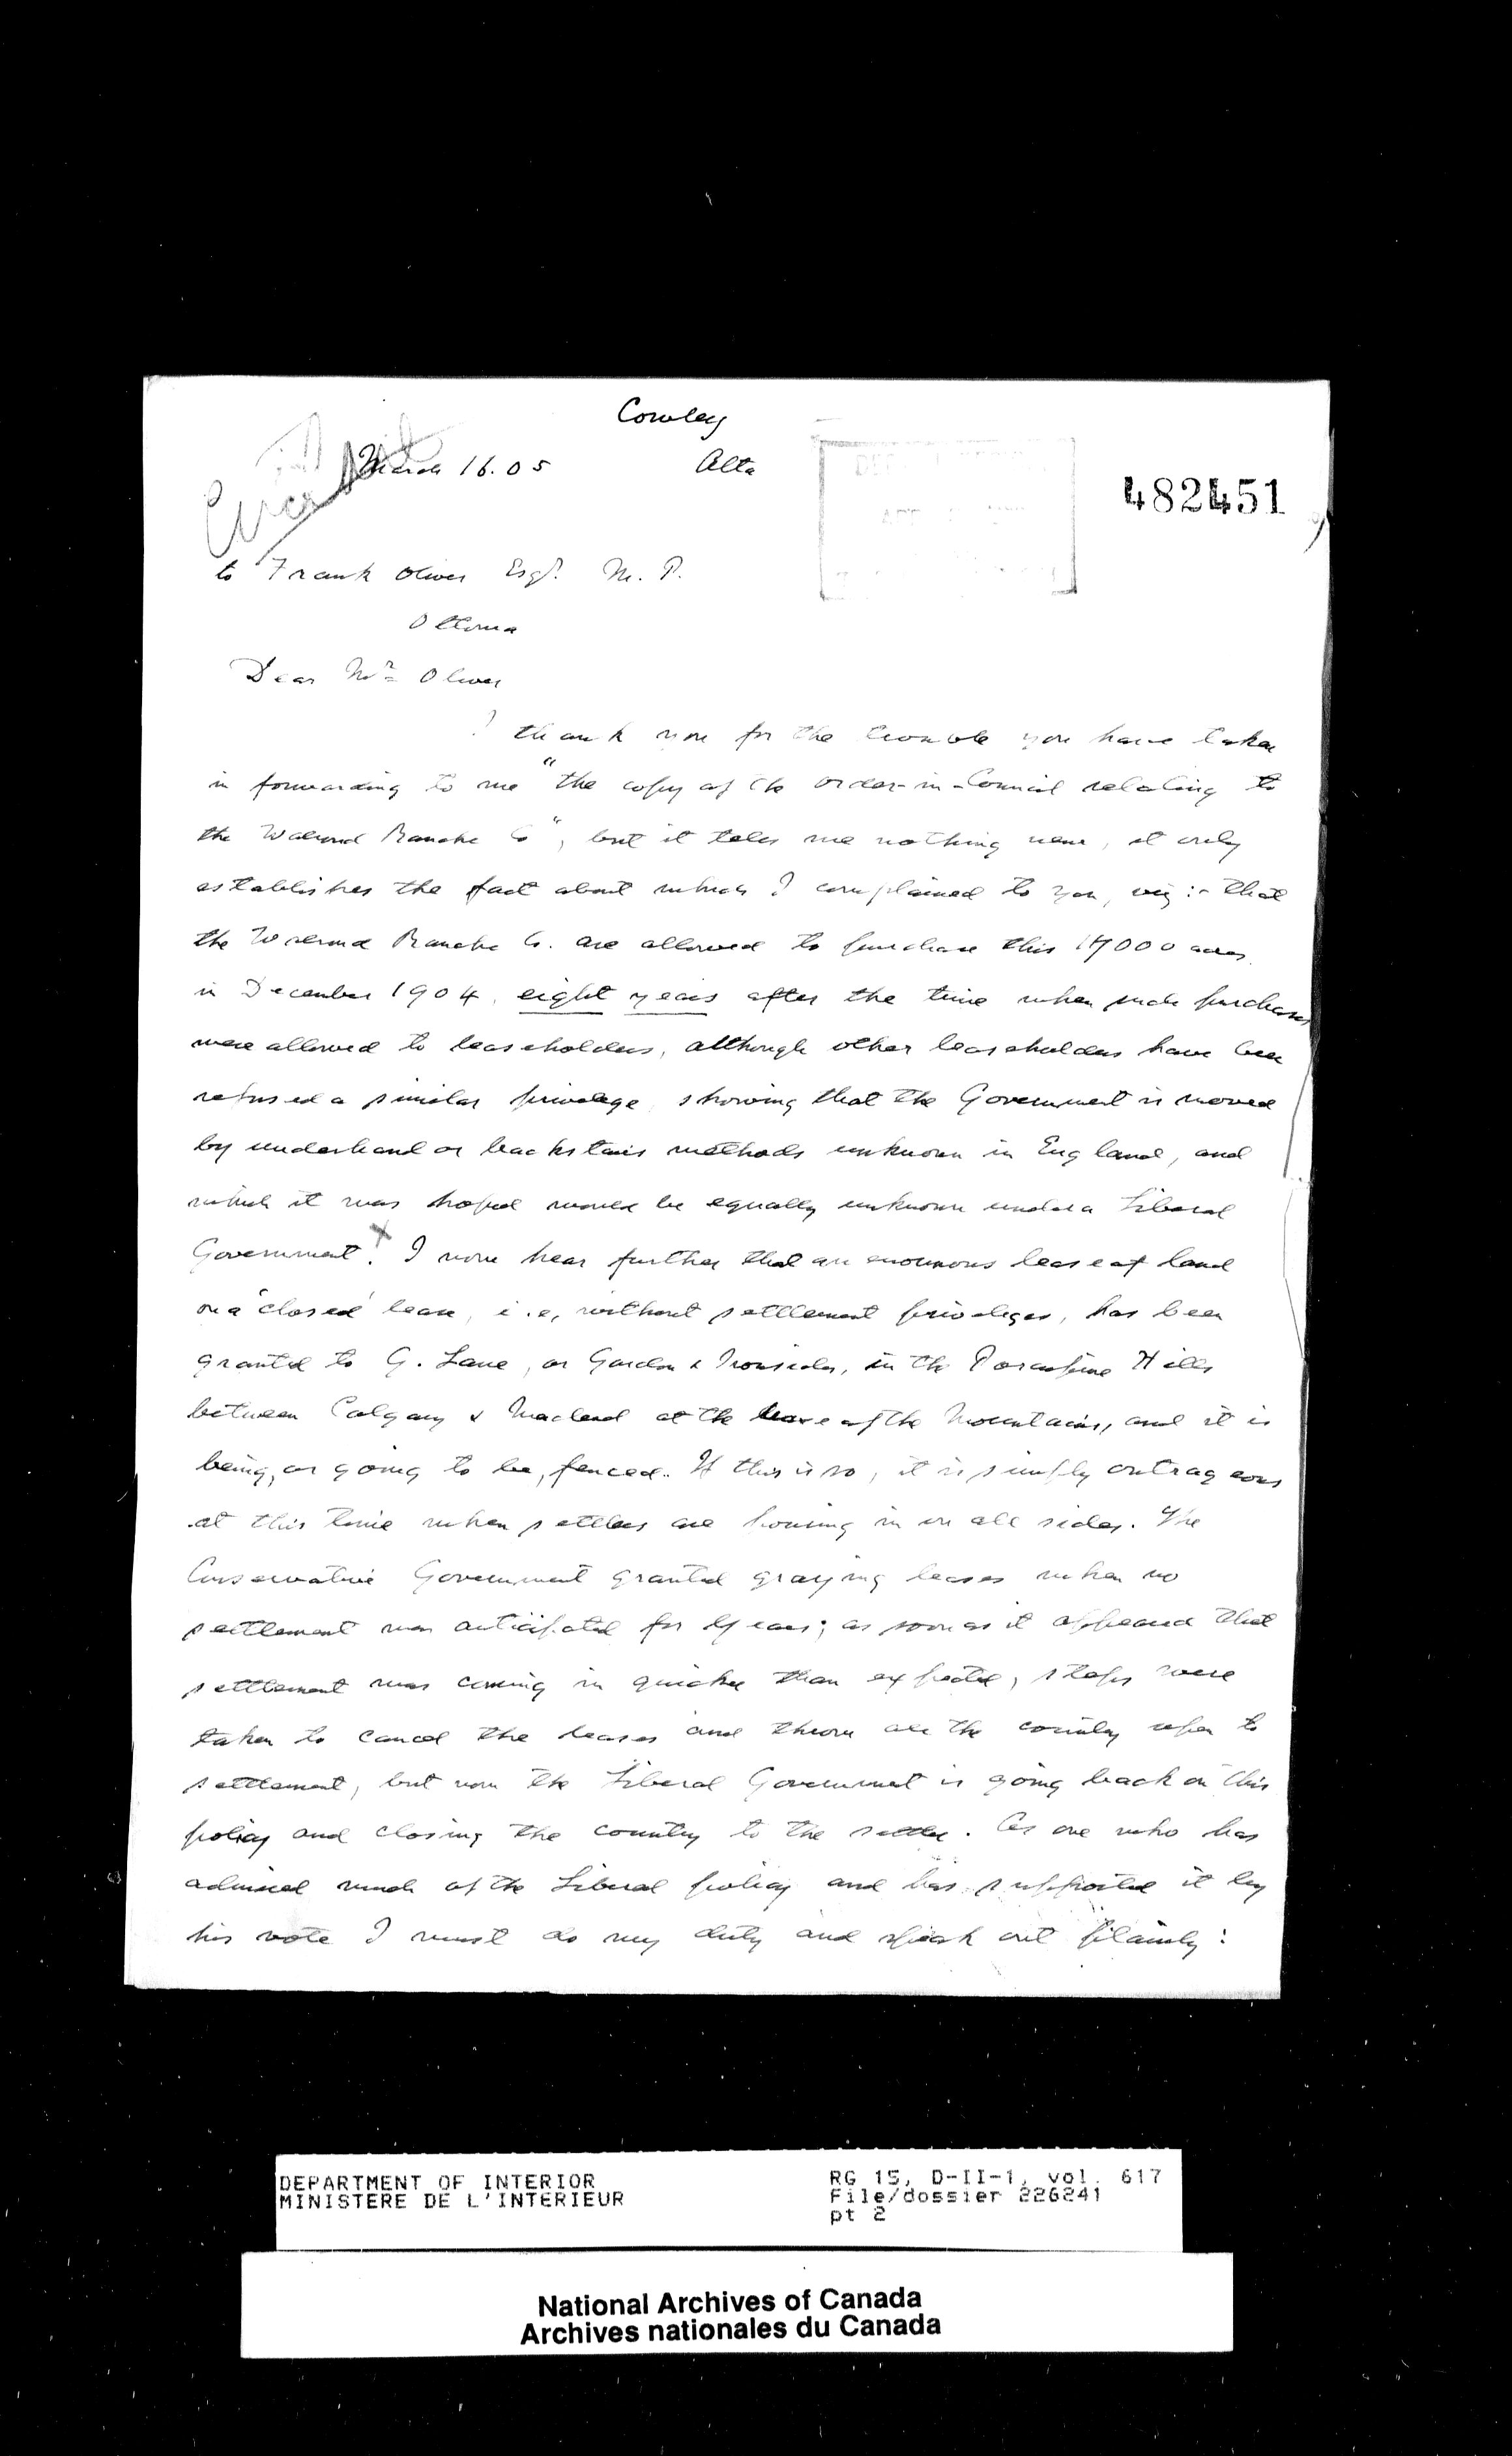 Cowley
March 16. 05 Alta
482451
to Frank Oliver Esqr. M. P.
Ottawa
Dear Mr Oliver
I thank you for the trouble you have taken
in forwarding to me "the copy of the order-in-Council relating to
the Walrond Ranche Co", but it tells me nothing new, it only
establishes the fact about which I complained to you, viz:- that
the Walrond Ranche Co. are allowed to purchase this 17000 acres
in December 1904, eight years after the time when such purchases
were allowed to leaseholders, although other leaseholders have been
refused a similar privilege, showing that the Government is moved
by underhand or backstairs methods unknown in England, and
which it was hoped would be equally unknown under a Liberal
Government. I now hear further that an enormous lease of land
on a "closed" lease, i.e, without settlement privileges, has been
granted to G. Lane, or Gordon & Ironsides, in the Porcupine Hills
between Calgary & Macleod at the base of the Mountains, and it is
being, or going to be, fenced. If this is so, it is simply outrageous
at this time when settlers are pouring in on all sides. The
Conservative Government granted grazing leases when no
settlement was anticipated for years; as soon as it appeared that
settlement was coming in quicker than expected, steps were
taken to cancel the leases and throw all the country open to
settlement, but now the Liberal Government is going back on this
policy and closing the country to the settler. As one who has
admired much of the Liberal policy and has supported it by
his vote I must do my duty and speak out plainly:
DEPARTMENT OF INTERIOR
MINISTERE DE L'INTERIEUR
RG 15, D-II-1, vol. 617
File/dossier 226241
pt 2
National Archives of Canada
Archives nationales du Canada